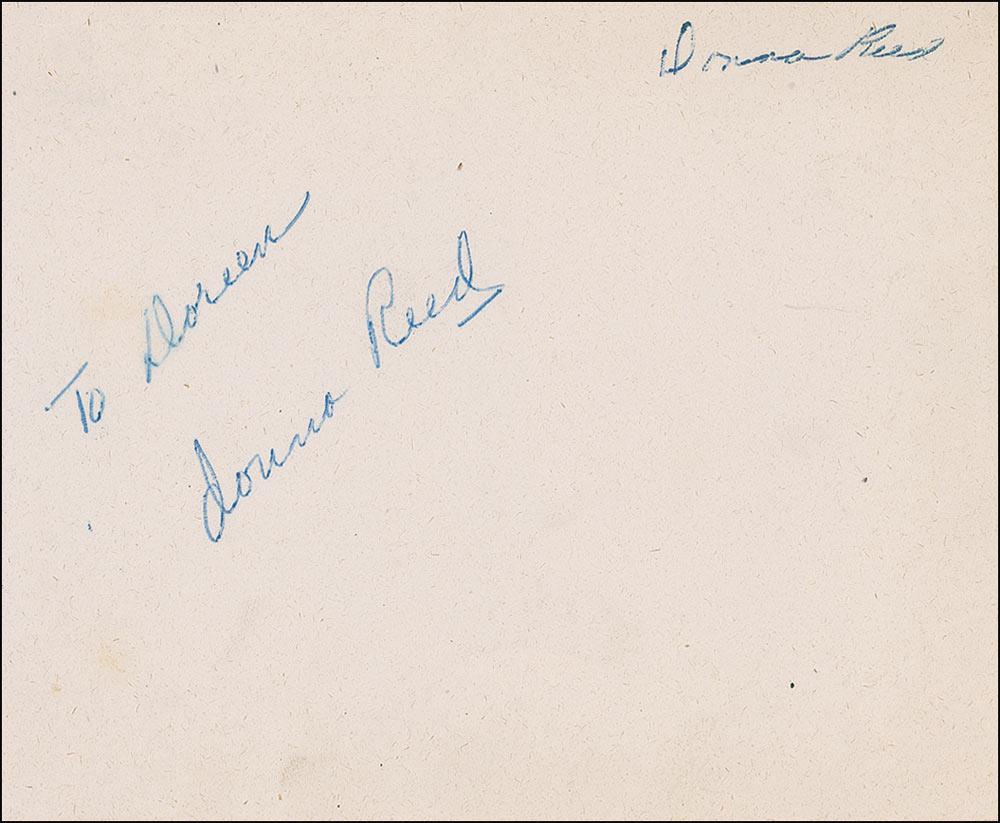 Donna Reed
To Doreen
Donna Reed